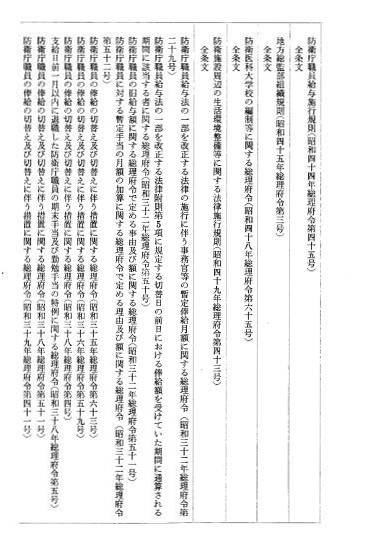 防衛庁職員給与施行規則(昭和四十四年総理府令第四十五号)
全条文
地方総監部組織規則(昭和四十五年総理府令第三号)
全条文
防衛医科大学校の編制等に関する総理府令(昭和四十八年総理府令第六十五号)
全条文
防衛施設周辺の生活環境整備等に関する法律施行規則(昭和四十九年総理府令第四十三号)
全条文
防衛庁職員給与法の一部を改正する法律の施行に伴う事務官等の暫定俸給月額に関する総理府令(昭和三十二年総理府令第
二十九号)
防衛庁職員給与法の一部を改正する法律附則第5項に規定する切替日の前日における俸給額を受けていた期間に通算される
期間に該当する者に関する総理府令(昭和三十二年総理府令第五十号)
防衛庁職員の旧給与額に関する総理府令で定める事由及び額に関する総理府令(昭和三十二年総理府令第五十一号)
防衛庁職員に対する暫定手当の月額の加算に関する総理府令で定める理由及び額に関する総理府令(昭和三十二年総理府令
第五十二号)
防衛庁職員の俸給の切替え及び切替えに伴う措置に関する総理府令(昭和三十五年総理府令第六十三号)
防衛庁職員の俸給の切替え及び切替えに伴う措置に関する総理府令(昭和三十六年総理府令第五十九号)
防衛庁職員の俸給の切替え及び切替えに伴う措置に関する総理府令(昭和三十八年総理府令第四号)
支給日前一月以内に退職した防衛庁職員の期末手当及び勤勉手当の特例に関する総理府令(昭和三十八年総理府令第五号)
防衛庁職員の俸給の切替え及び切替えに伴う措置に関する総理府令(昭和三十八年総理府令第五十一号)
防衛庁職員の俸給の切替え及び切替えに伴う措置に関する総理府令(昭和三十九年総理府令第四十一号)